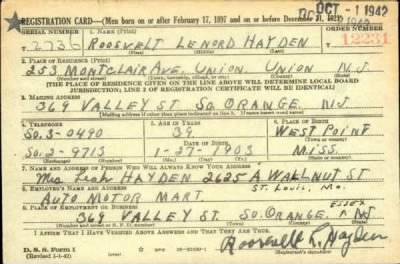 OCT - 1 1942
REGISTRATION CARD—(Men born on or after February 17, 1897 and on or before December 31, 1921)
SERIAL NUMBER
1. NAME (Print)
ORDER NUMBER
2736
ROOSEVELT LENORD HAYDEN
12231
(First) (Middle) (Last)
2. PLACE OF RESIDENCE (Print)
253 MONTCLAIR AVE. UNION UNION N.J.
(Number and street) (Town, township, village, or city) (County) (State)
[THE PLACE OF RESIDENCE GIVEN ON THE LINE ABOVE WILL DETERMINE LOCAL BOARD
JURISDICTION; LINE 2 OF REGISTRATION CERTIFICATE WILL BE IDENTICAL]
3. MAILING ADDRESS
369 VALLEY ST SO. ORANGE N.J.
(Mailing address if other than place indicated on line 2. If same insert word same)
4. TELEPHONE
5. AGE IN YEARS
6. PLACE OF BIRTH
SO. 3-0490
39
WEST POINT
DATE OF BIRTH
SO. 2-9713
1-27-1903
MISS.
(Exchange) (Number)
(Mo.) (Day) (Yr.)
(State or country)
7. NAME AND ADDRESS OF PERSON WHO WILL ALWAYS KNOW YOUR ADDRESS
HAYDEN 2625 A WALLNUT ST
ST. LOUIS, MO.
8. EMPLOYER'S NAME AND ADDRESS
AUTO MOTOR MART.
9. PLACE OF EMPLOYMENT OR BUSINESS
ESSEX
369 VALLEY ST. SO. ORANGE. NJ
(Number and street or R. F. D. number) (Town) (County) (State)
I AFFIRM THAT I HAVE VERIFIED ABOVE ANSWERS AND THAT THEY ARE TRUE.
D. S. S. Form 1
(Revised 1-1-42)
(over)
Roosevelt L. Hayden
(Registrant's signature)